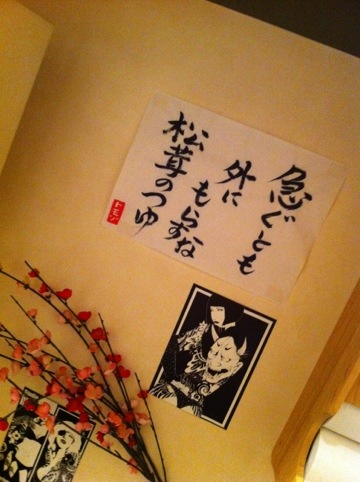 急ぐとも
外に
もらすな
松茸のつゆ